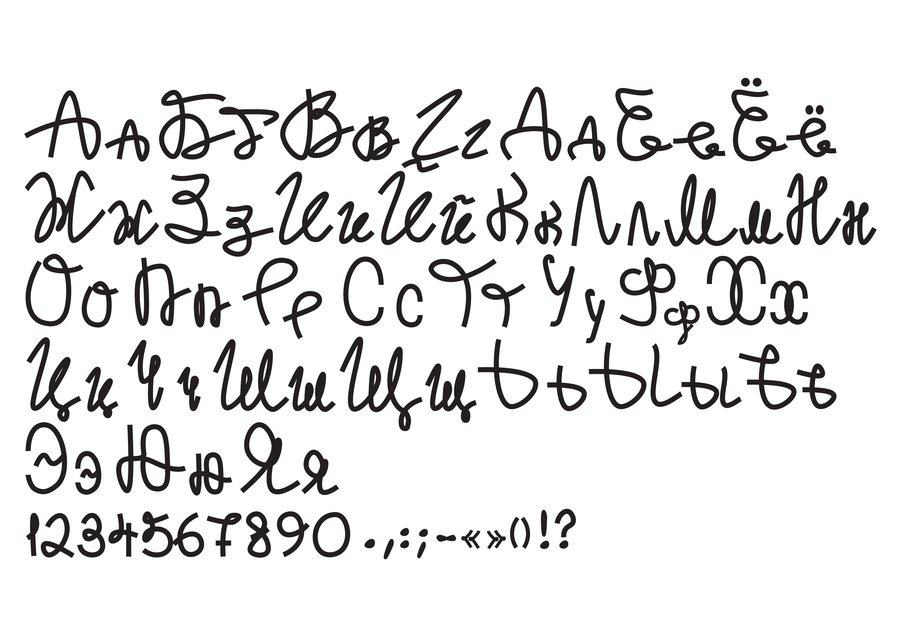 АаБбВвГгДдЕеЁё
ЖжЗзИиЙйКкЛлМмНн
ОоПпРрСсТтУуФфХх
ЦцЧчШшЩщЬьЫыЪъ
ЭэЮюЯя
1234567890 .,:;-«»()!?